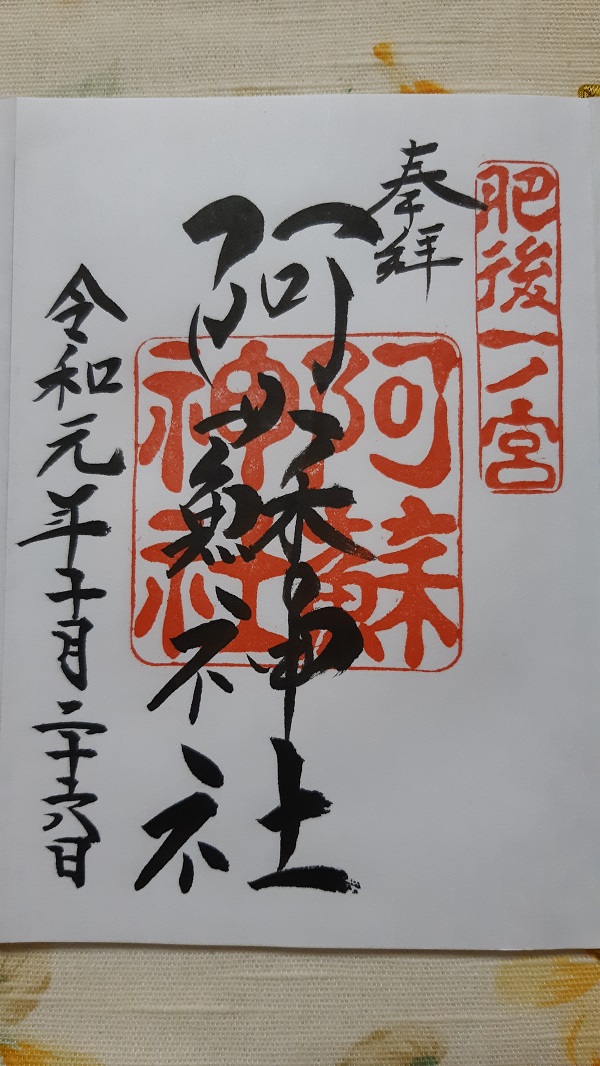 肥後一ノ宮
奉拝
阿蘇神社
阿蘇神社
令和元年十月二十六日